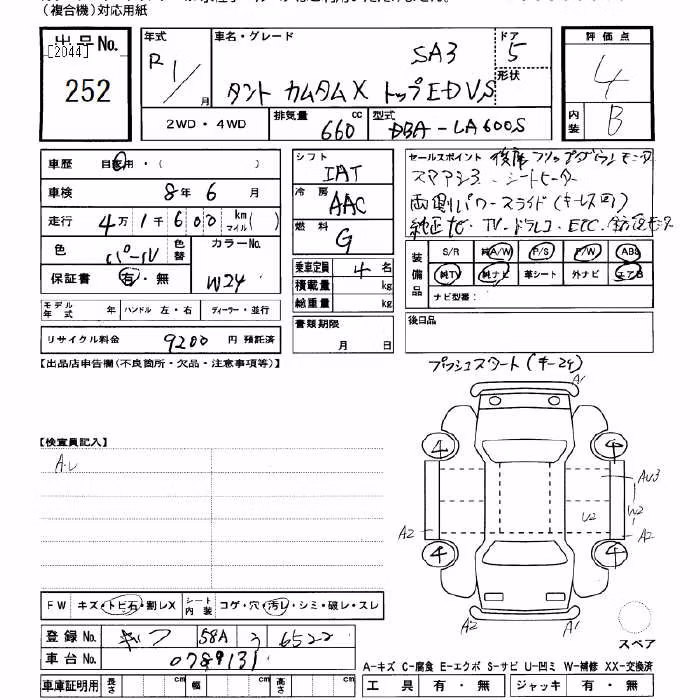 (複合機)対応用紙
出品No.
[2044]
252
年式 R1/ 月
車名・グレード SA3
タント カスタムX トップEDVS
ドア 5
形状
評価点 4
内装 B
2WD・4WD
排気量 660 cc
型式 DBA-LA600S
車歴 自家用・( )
車検 8年 6月
走行 4万 1千 600 km マイル( )
色 パール 色替
カラーNo. W24
保証書 有・無
モデル年式 年 ハンドル 左・右 ディーラー・並行
リサイクル料金 9200 円 預託済
シフト IAT
冷房 AAC
燃料 G
乗車定員 4 名
積載量 kg
総重量 kg
書類期限 月 日
セールスポイント 後席フリップダウンモニター
スマアシ3 シートヒーター
両側パワースライド(キーレス可)
純正ナビ・TV・ドラレコ・ETC・全方位モニタ
装備品
S/R 純A/W P/S P/W ABS
純TV 純ナビ 革シート 外ナビ エアB
ナビ型番:
後日品
【出品店申告欄(不良箇所・欠品・注意事項等)】
プッシュスタート(キー2ケ)
【検査員記入】
A.U
A1
4 4
AU3
U2 W2
A2 A2
4 4
A2 A1
スペア
FW キズ・トビ石・割レX
シート内装 コゲ・穴・汚レ・シミ・破レ・スレ
登録No. ギフ 58A 3 6522
車台No. 0789131
車庫証明用 長さ cm 幅 cm 高さ cm
A-キズ C-腐食 E-エクボ S-サビ U-凹ミ W-補修 XX-交換済
工具 有・無 ジャッキ 有・無